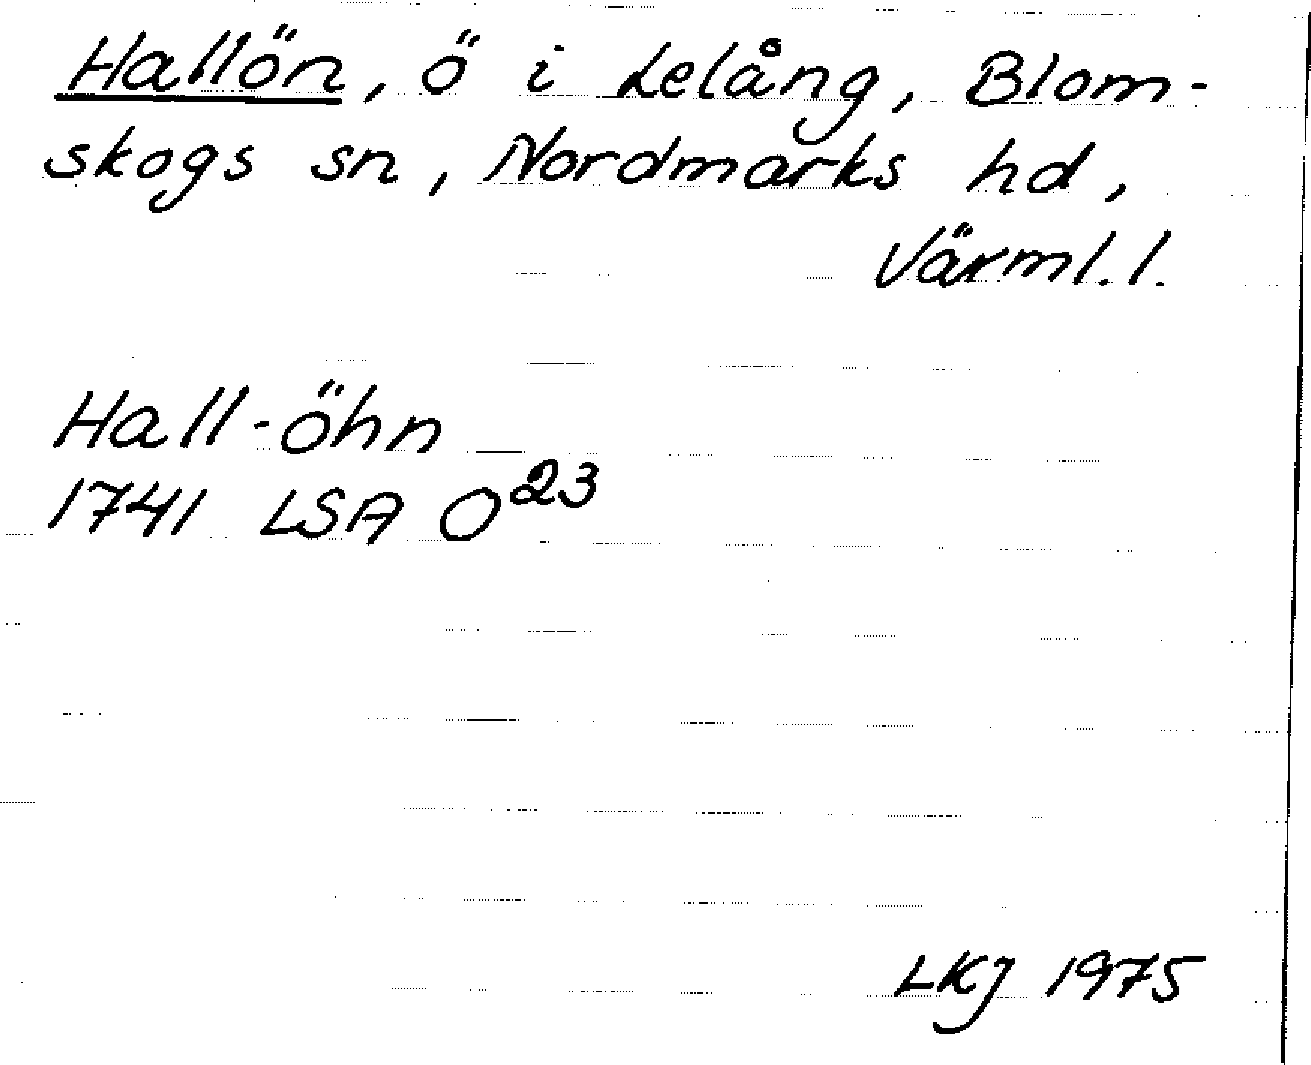 Hallön, ö i Lelång, Blom-
skogs sn, Nordmarks hd,
Värml. l.
Hall-öhn
1741 LSA O²³
LKJ 1975